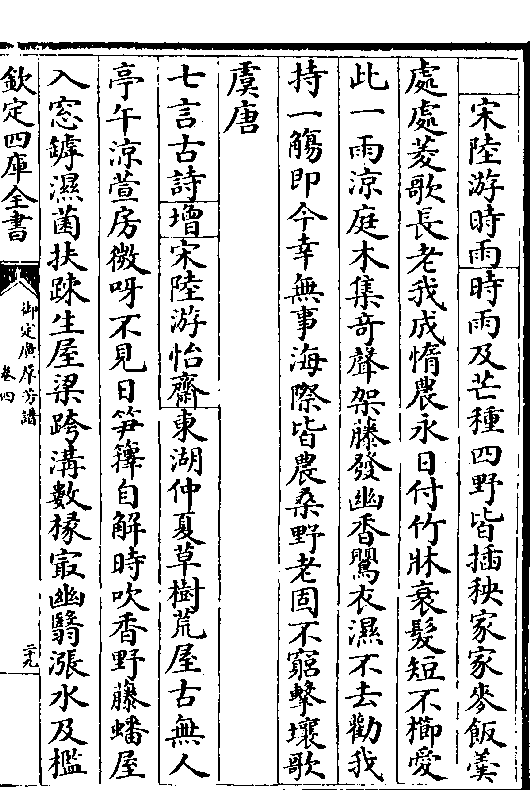 宋陸游時雨時雨及芒種四野皆插秧家家麥飯羹
處處菱歌長老我成惰農永日付竹牀衰髮短不櫛愛
此一雨涼庭木集奇聲架藤發幽香鸎衣濕不去勸我
持一觴即今幸無事海際皆農桑野老固不窮擊壤歌
虞唐
七言古詩增宋陸游怡齋東湖仲夏草樹荒屋古無人
亭午涼萱房微呀不見日笋籜自解時吹香野藤蟠屋
入窓罅濕菌扶疎生屋梁跨溝數椽寂幽翳漲水及檻
欽定四庫全書
御定廣羣芳譜
卷四
二十九